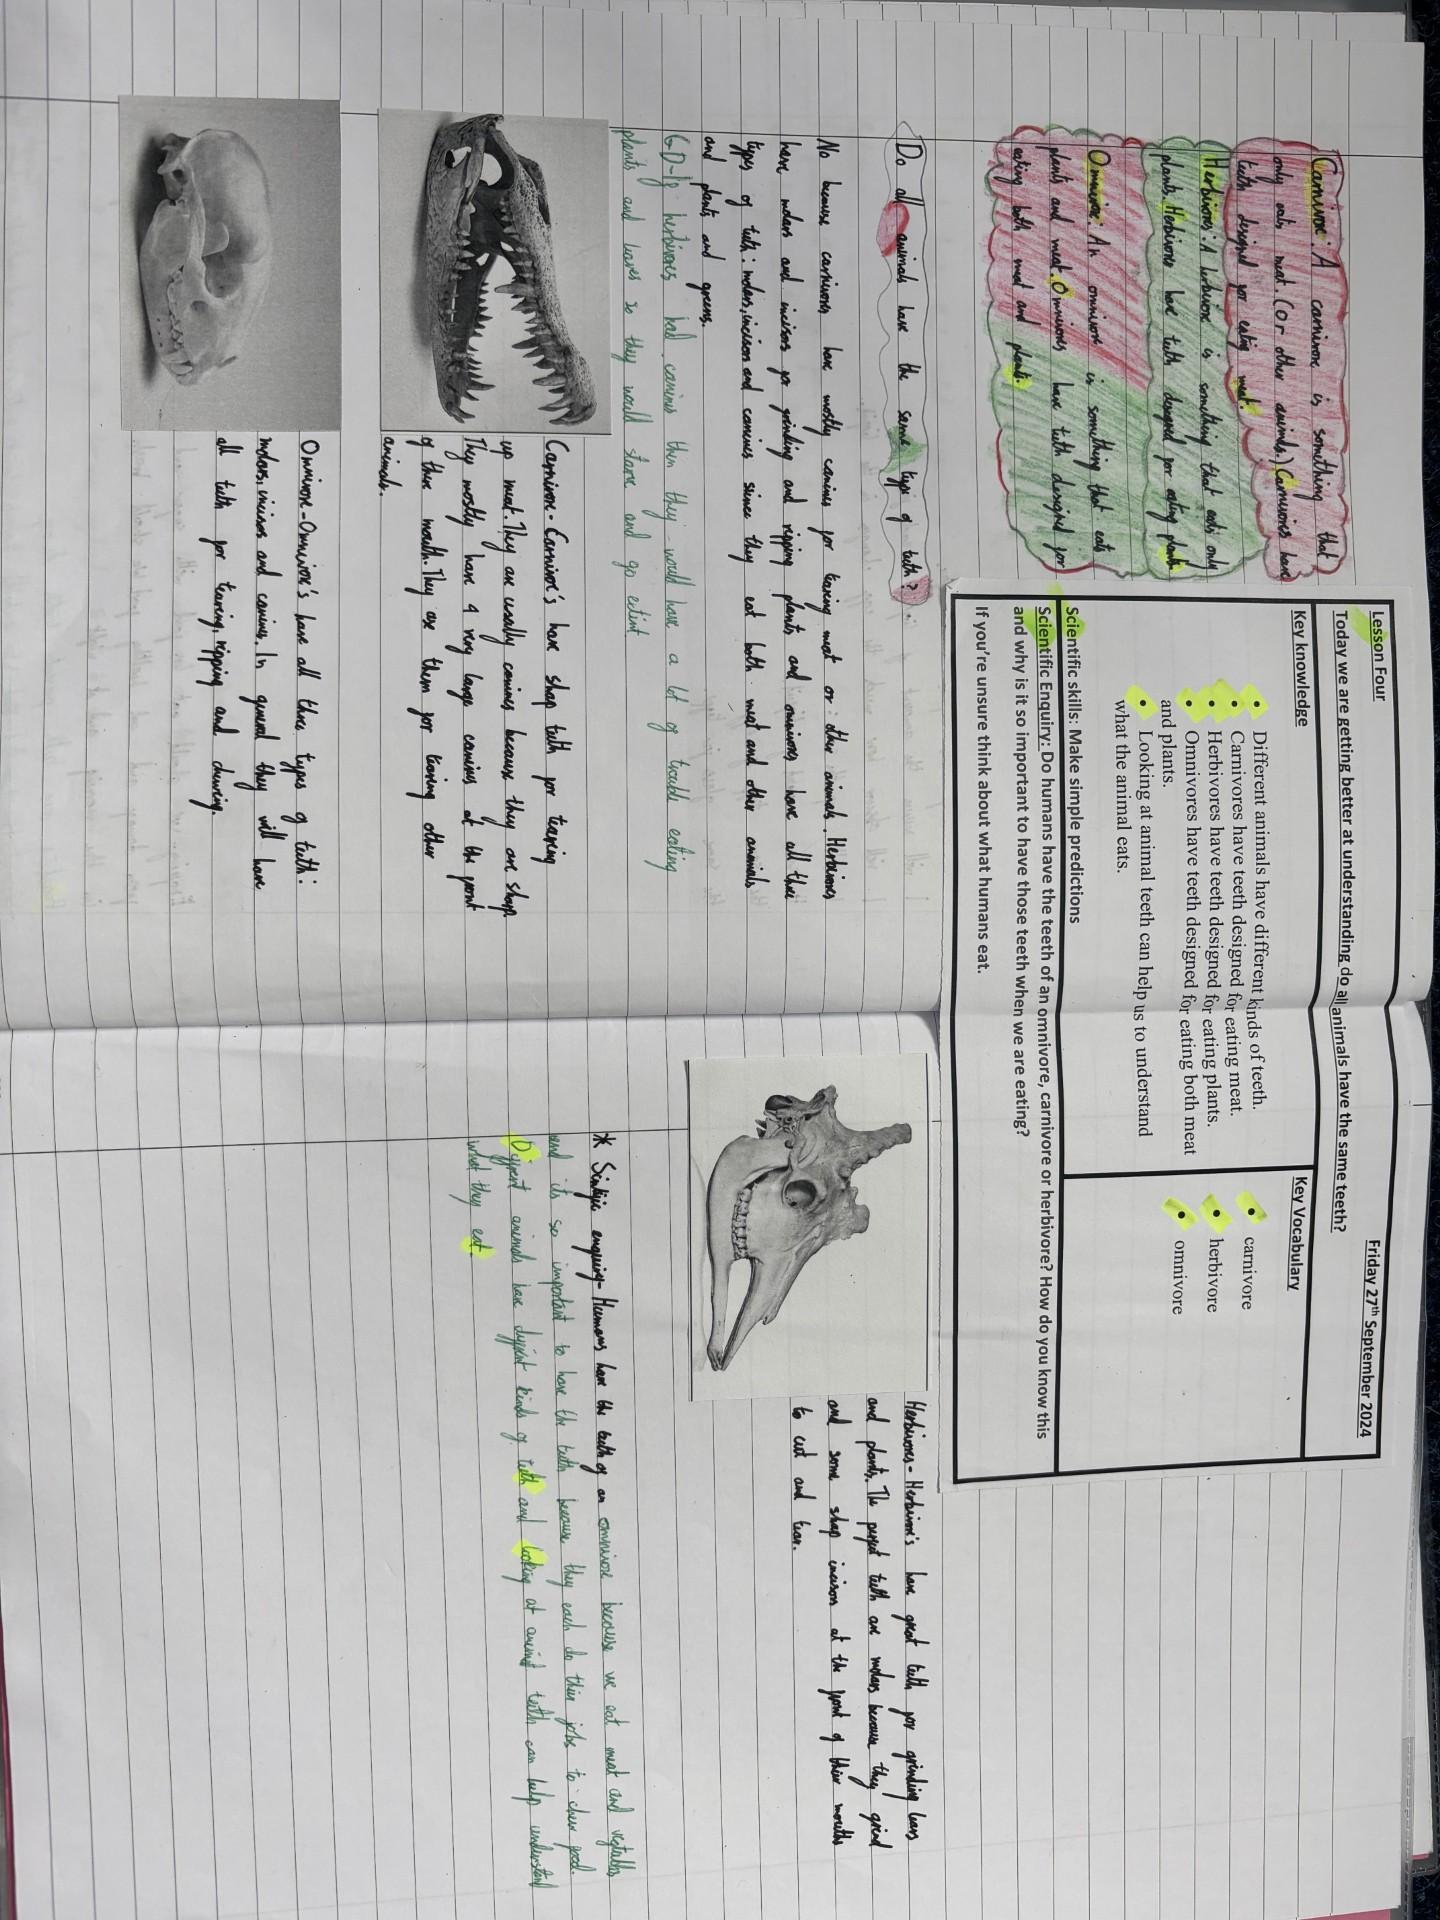 Lesson Four
Friday 27th September 2024
Today we are getting better at understanding do all animals have the same teeth?
Key knowledge
• Different animals have different kinds of teeth.
• Carnivores have teeth designed for eating meat.
• Herbivores have teeth designed for eating plants.
• Omnivores have teeth designed for eating both meat
and plants.
• Looking at animal teeth can help us to understand
what the animal eats.
Key Vocabulary
• carnivore
• herbivore
• omnivore
Scientific skills: Make simple predictions
Scientific Enquiry: Do humans have the teeth of an omnivore, carnivore or herbivore? How do you know this
and why is it so important to have those teeth when we are eating?
If you're unsure think about what humans eat.
Carnivore: A carnivore is something that
only eats meat. (or other animals.) Carnivores have
teeth designed for eating meat.
Herbivores: A herbivore is something that eats only
plants. Herbivores have teeth designed for eating plants
Omnivore: An omnivore is something that eats
plants and meat. Omnivores have teeth designed for
eating both meat and plants.
Do all animals have the same type of teeth?
No because carnivores have mostly canines for tearing meat or other animals. Herbivores
have molars and incisors for grinding and ripping plants and omnivores have all three
types of teeth: molars, incisors and canines since they eat both meat and other animals
and plants and greens.
GD-If herbivores had canines then they would have a lot of trouble eating
plants and leaves so they would starve and go extint
Carnivore-Carnivore's have shap teeth for tearing
up meat. They are usally canines because they are sharp.
They mostly have 4 very large canines at the front
of there mouth. They use them for tearing other
animals.
Omnivore-Omnivore's have all three types of teeth:
molars, incisors and canines. In general they will have
all teeth for tearing, ripping and chewing.
Herbivores- Herbivore's have great teeth for grinding leavs
and plants. The perfect teeth are molars because they grind
and some shap incisors at the front of their mouths
to cut and tear.
* Scintific enquiry- Humans have the teeth of an omnivore because we eat meat and vegtables
and its so important to have the teeth because they each do their jobs to chew food.
Diffrent animals have diffrent kinds of teeth and looking at animal teeth can help understand
what they eat.